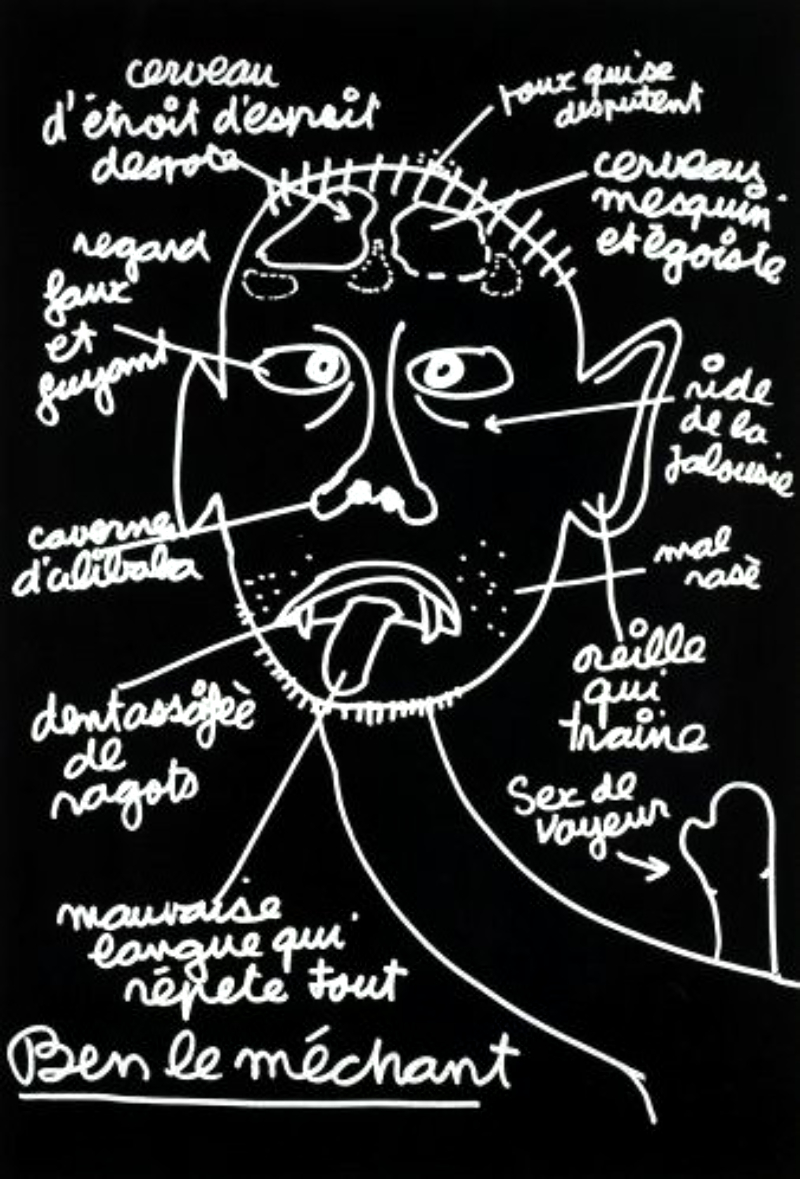 cerveau
d'étroit d'esprit
despote
poux qui se
disputent
cerveau
mesquin
et égoiste
regard
faux
et
fuyant
ride
de la
jalousie
caverne
d'alibaba
mal
rasè
dent assoifèè
de
ragots
oreille
qui
traine
Sex de
voyeur
mauvaise
langue qui
rèpete tout
Ben le méchant